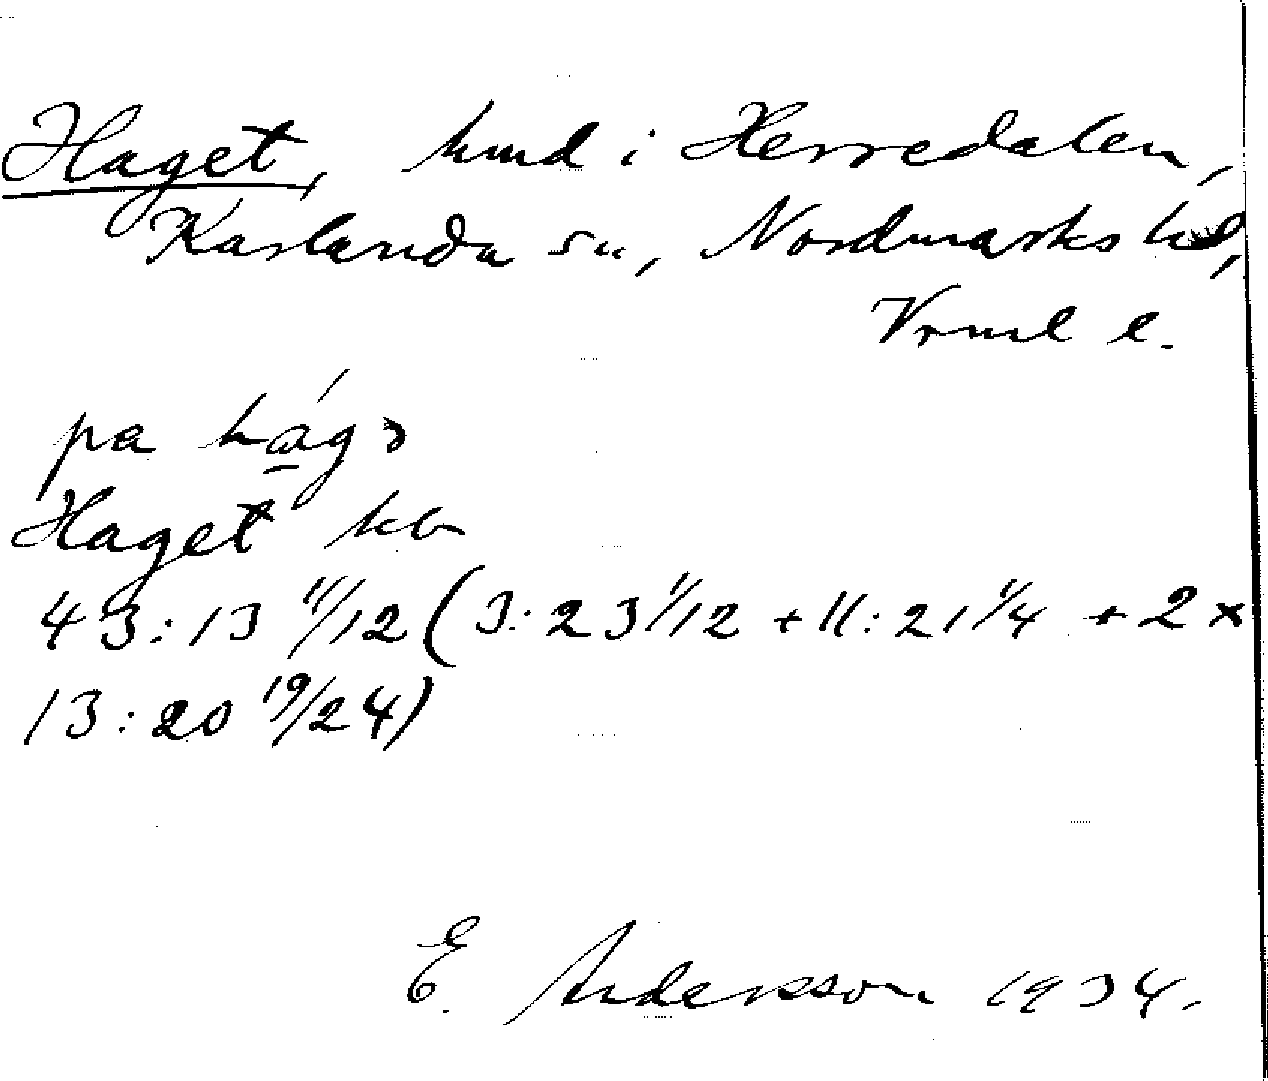 Haget, hmd i Herredalen,
Karlanda sn, Nordmarks hd,
Vrml l.
pa hágə
Haget kb
43:13 11/12 (3:23 1/12 + 11:21 1/4 + 2 x
13:20 19/24)
E. Andersson 1934.